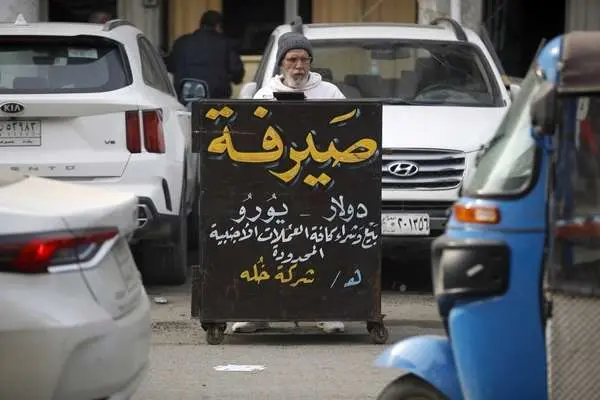 صيرفة
دولار - يورو
بيع وشراء كافة العملات الاجنبية
المحدودة
هـ/ شركة خُله
KIA
HYUNDAI